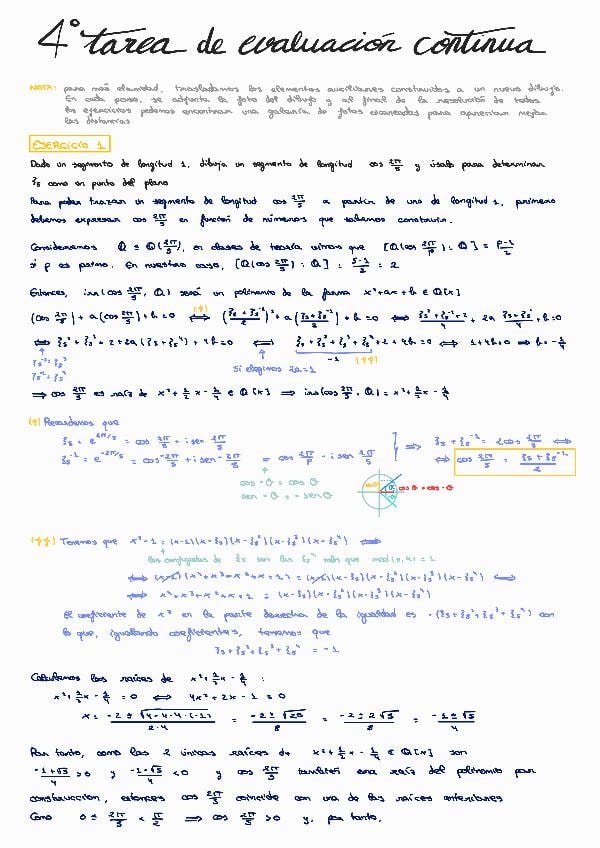 4º tarea de evaluación continua
NOTA: para más claridad, trasladamos los elementos auxiliares construidos a un nuevo dibujo.
En cada paso, se adjunta la foto del dibujo y al final de la resolución de todos
los ejercicios podemos encontrar una galería de fotos escaneadas para apreciar mejor
las distancias
EJERCICIO 1
Dado un segmento de longitud 1, dibuja un segmento de longitud cos 2π/5 y úsalo para determinar
ξ₅ como un punto del plano
Para poder trazar un segmento de longitud cos 2π/5 a partir de uno de longitud 1, primero
debemos expresar cos 2π/5 en función de números que sabemos construir.
Consideramos Q ⊆ Q(2π/5), en clases de teoría vimos que [Q(cos 2π/p) : Q] = (p-1)/2
si p es primo. En nuestro caso, [Q(cos 2π/5) : Q] = (5-1)/2 = 2
Entonces, irr(cos 2π/5, Q) será un polinomio de la forma x²+ax+b ∈ Q[x]
(cos 2π/5)² + a(cos 2π/5) + b = 0 ⟺ (†) ((ξ₅+ξ₅⁻¹)/2)² + a((ξ₅+ξ₅⁻¹)/2) + b = 0 ⟺ (ξ₅²+ξ₅⁻²+2)/4 + 2a (ξ₅+ξ₅⁻¹)/4 + b = 0
⟺ ξ₅² + ξ₅³ + 2 + 2a(ξ₅+ξ₅⁴) + 4b = 0 ⟺ ξ₅ + ξ₅² + ξ₅³ + ξ₅⁴ + 2 + 4b = 0 ⟺ 1+4b = 0 ⟺ b = -1/4
ξ₅⁻² = ξ₅³
ξ₅⁻¹ = ξ₅⁴
Si elegimos 2a=1
-1 (††)
⟹ cos 2π/5 es raíz de x² + 1/2 x - 1/4 ∈ Q[x] ⟹ irr(cos 2π/5, Q) = x² + 1/2 x - 1/4
(†) Recordemos que
ξ₅ = e^(2πi/5) = cos 2π/5 + i sen 2π/5
ξ₅⁻¹ = e^(-2πi/5) = cos -2π/5 + i sen -2π/5 = cos 2π/p - i sen 2π/5
⟹ ξ₅ + ξ₅⁻¹ = 2cos 2π/5 ⟺
⟺ cos 2π/5 = (ξ₅+ξ₅⁻¹)/2
cos -θ = cos θ
sen -θ = -sen θ
cos θ = cos -θ
(††) Tenemos que x⁵-1 = (x-1)(x-ξ₅)(x-ξ₅²)(x-ξ₅³)(x-ξ₅⁴) ⟺
los conjugados de ξ₅ son los ξ₅ⁿ tales que mcd(n,5) = 1
⟺ (x-1)(x⁴+x³+x²+x+1) = (x-1)(x-ξ₅)(x-ξ₅²)(x-ξ₅³)(x-ξ₅⁴) ⟺
⟺ x⁴+x³+x²+x+1 = (x-ξ₅)(x-ξ₅²)(x-ξ₅³)(x-ξ₅⁴)
El coeficiente de x³ en la parte derecha de la igualdad es -(ξ₅+ξ₅²+ξ₅³+ξ₅⁴) con
lo que, igualando coeficientes, tenemos que
ξ₅+ξ₅²+ξ₅³+ξ₅⁴ = -1
Calculamos las raíces de x² + 1/2 x - 1/4 :
x² + 1/2 x - 1/4 = 0 ⟺ 4x² + 2x - 1 = 0
x = (-2 ± √(4-4·4·(-1)))/(2·4) = (-2 ± √20)/8 = (-2 ± 2√5)/8 = (-1 ± √5)/4
Por tanto, como las 2 únicas raíces de x² + 1/2 x - 1/4 ∈ Q[x] son
(-1+√5)/4 > 0 y (-1-√5)/4 < 0 y cos 2π/5 también era raíz del polinomio por
construcción, entonces cos 2π/5 coincide con una de las raíces anteriores
Como 0 ≤ 2π/5 < π/2 ⟹ cos 2π/5 > 0 y, por tanto,